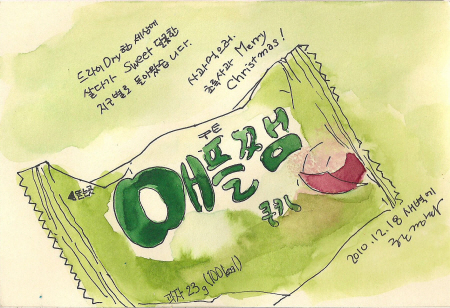 드라이 Dry한 세상에
살다가 Sweet 달콤한
지구별로 돌아왔습니다.
사과먹으러.
초록사과 Merry
Christmas!
애플쨈
쿠키
과자 23g (100kcal)
2010.12.18 새벽에